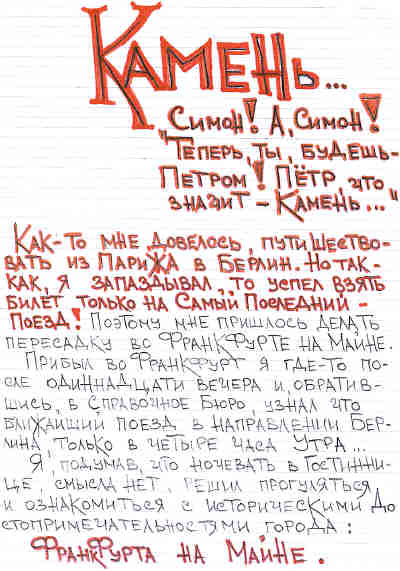 Камень...
Симон! А, Симон!
"Теперь, ты, будешь-
Петром! Пётр что
значит - Камень..."
Как-то мне довелось, путишество-
вать из Парижа в Берлин. Но так-
как, я запаздывал, то успел взять
билет только на Самый Последний -
Поезд! Поэтому мне пришлось делать
пересадку во Франкфурте на Майне.
Прибыл во Франкфурт я где-то по-
сле одиннадцати вечера и, обратив-
шись, в Справочное Бюро, узнал что
ближайший поезд в направлении Бер-
лина, только в четыре часа утра...
Я, подумав, что ночевать в Гостинни-
це, смысла нет, решил прогуляться
и ознакомиться с историческими До
стопримечательностями города:
Франкфурта на Майне.